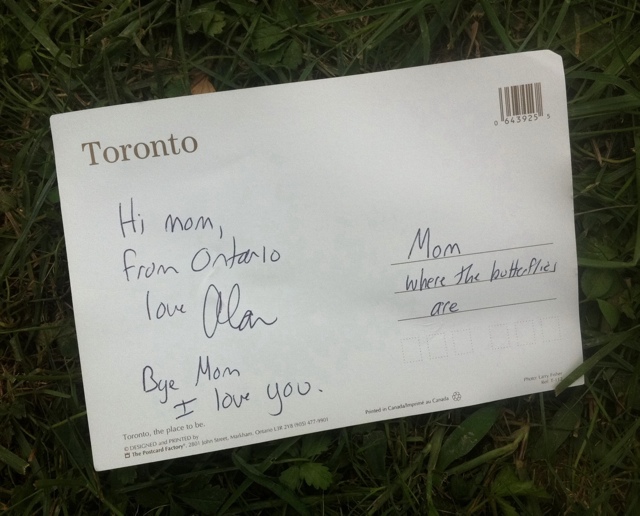 Toronto
0 643925 5
Hi mom,
from Ontario
love Alan
Bye Mom
I love you.
Mom
where the butterflies
are
Toronto, the place to be.
© DESIGNED and PRINTED by
The Postcard Factory® 2801 John Street, Markham, Ontario L3R 2Y8 (905) 477-9901
Printed in Canada/Imprimé au Canada
Photo:
Ref.